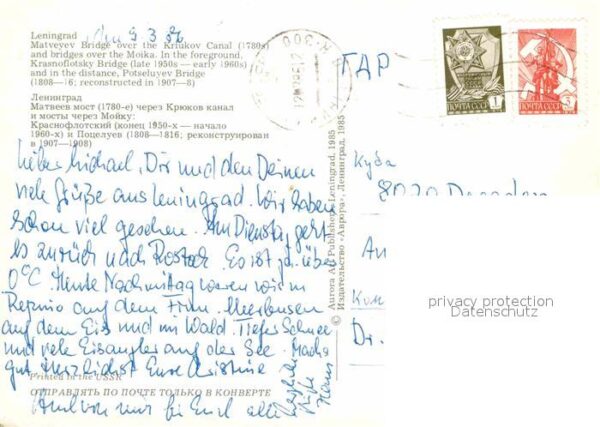 Leningrad
Matveyev Bridge over the Kriukov Canal (1780s)
and bridges over the Moika. In the foreground,
Krasnoflotsky Bridge (late 1950s — early 1960s)
and in the distance, Potseluyev Bridge
(1808—16; reconstructed in 1907—8)
Ленинград
Матвеев мост (1780-е) через Крюков канал
и мосты через Мойку:
Краснофлотский (конец 1950-х — начало
1960-х) и Поцелуев (1808—1816; реконструирован
в 1907—1908)
Lieber Michael, Dir und den Deinen
viele Grüße aus Leningrad. Wir haben
schon viel gesehen. Am Dienstag geht
es zurück nach Rostock. Es ist über
0°C. Heute Nachmittag waren wir in
Repino auf dem Finn. Meerbusen
auf dem Eis und im Wald. Tiefer Schnee
und viele Eisangler auf der See. Machs
gut. Herzlichst Eure Christine
Printed in the USSR
ОТПРАВЛЯТЬ ПО ПОЧТЕ ТОЛЬКО В КОНВЕРТЕ
Auch von mir für Euch alle
Hans
© Aurora Art Publishers, Leningrad, 1985
Издательство «Аврора», Ленинград, 1985
ГДР
ПОЧТА СССР 1
ПОЧТА СССР 3
Куда
8020 Dresden
Ком
Dr.
privacy protection
Datenschutz